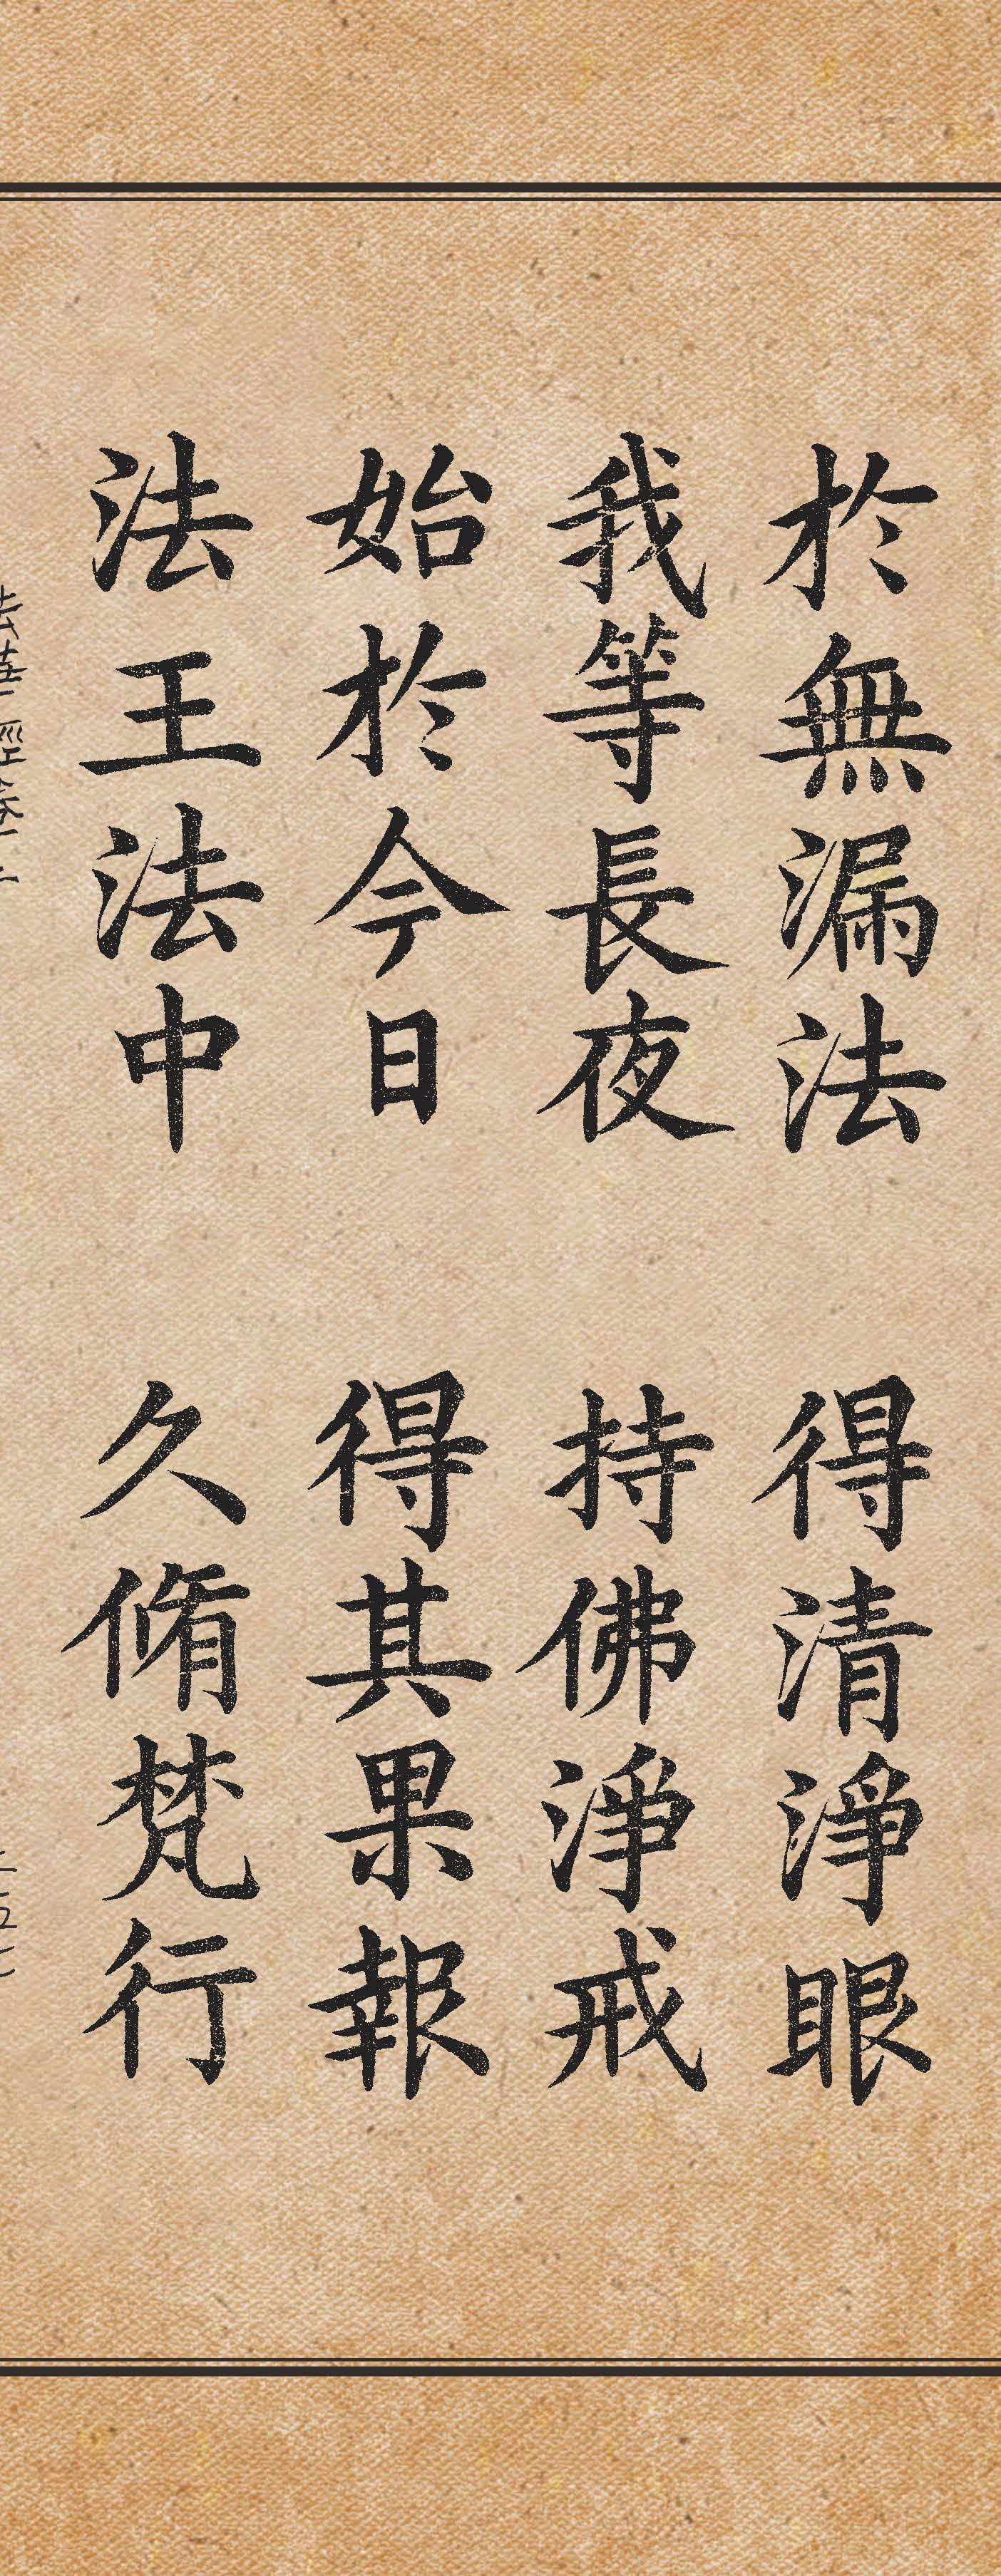 於無漏法　得清淨眼
我等長夜　持佛淨戒
始於今日　得其果報
法王法中　久脩梵行